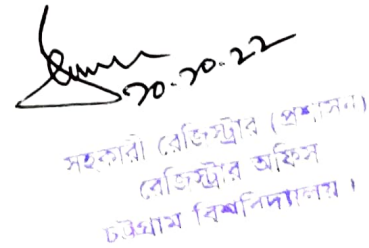 ১০.১০.২২
সহকারী রেজিস্ট্রার (প্রশাসন)
রেজিস্ট্রার অফিস
চট্টগ্রাম বিশ্ববিদ্যালয়।